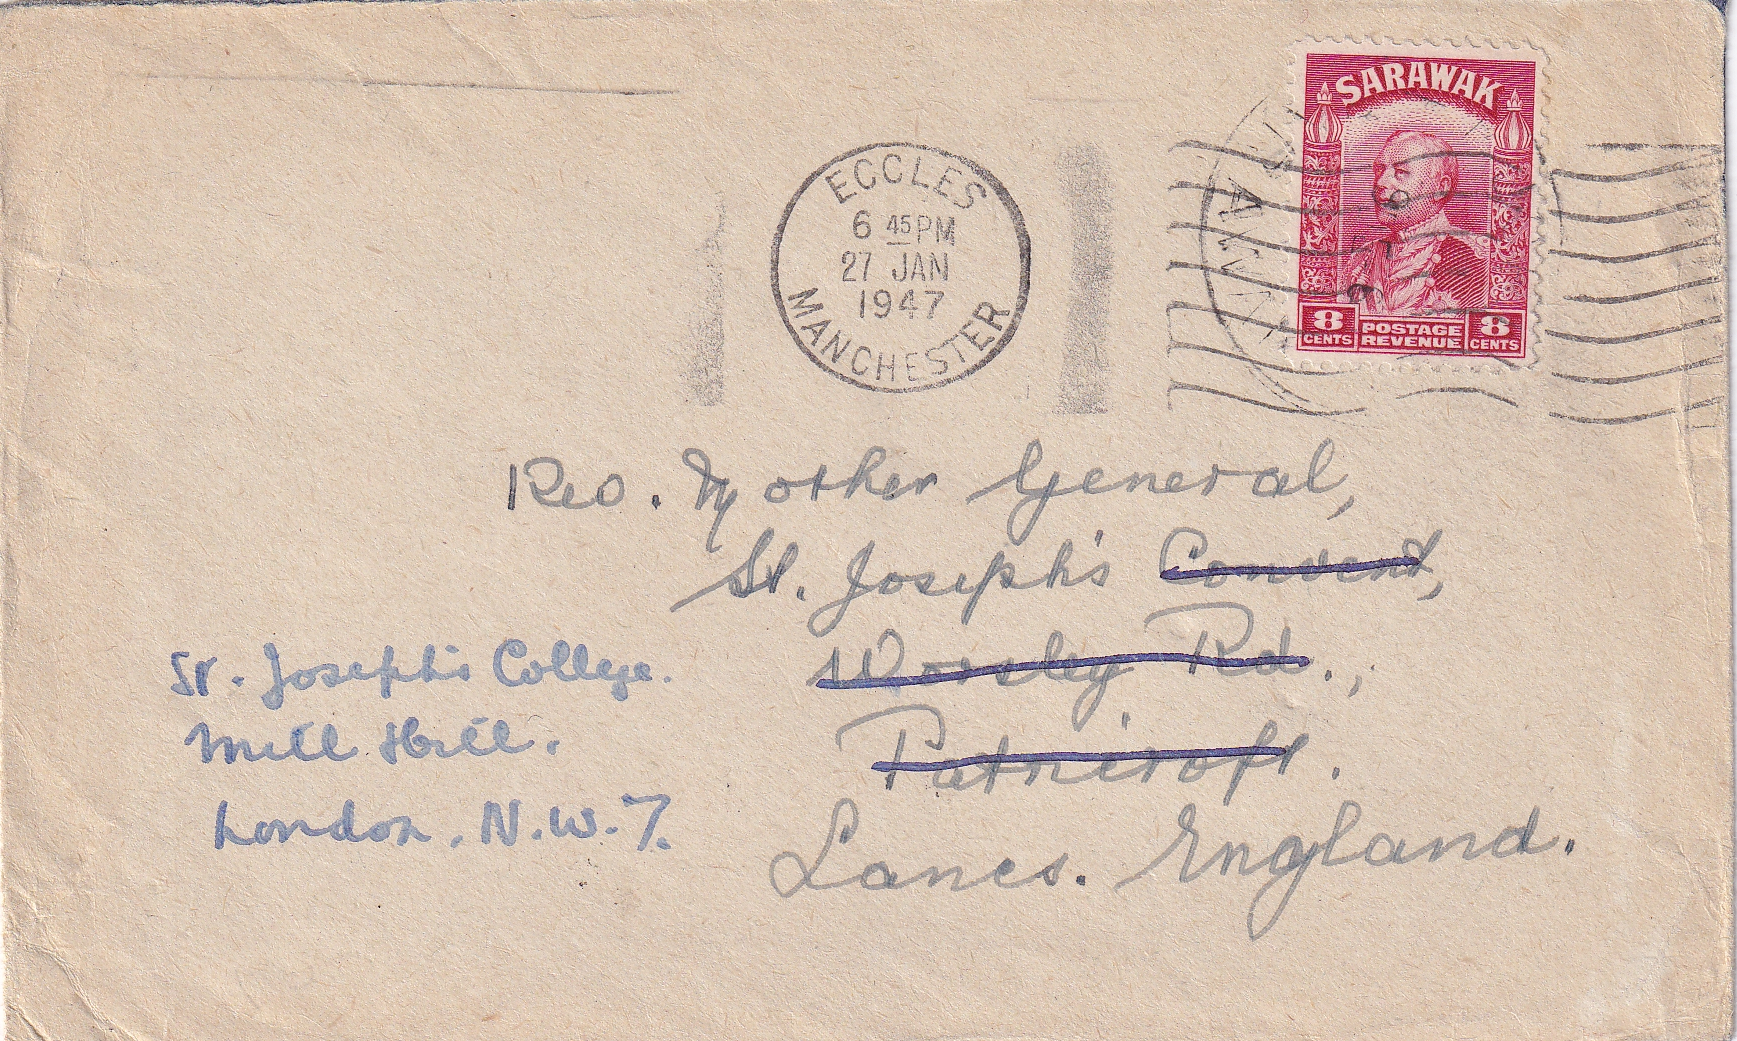 SARAWAK
8 CENTS POSTAGE REVENUE 8 CENTS
ECCLES
6 45 PM
27 JAN
1947
MANCHESTER
Rev. Mother General,
St. Joseph's Convent,
Worsley Rd.,
Patricroft.
Lancs. England.
St. Joseph's College.
Mill Hill.
London. N.W.7.